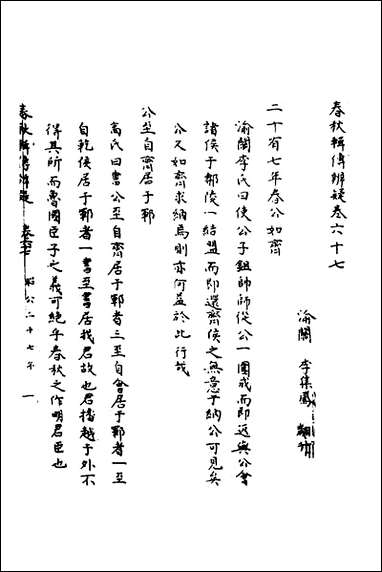 春秋輯傳辨疑卷六十七
渝關 李集鳳
二十有七年春公如齊
渝關李氏曰使公子鉏帥師從公一圍成而即返與公會
諸侯于鄟陵一結盟而即還齊侯之無意于納公可見矣
公又如齊求納焉則亦何益於此行哉
公至自齊居于鄆
高氏曰書公至自齊居于鄆者三至自會居于鄆者一至
自乾侯居于鄆者一書至書居我君故也君播越于外不
得其所而魯國臣子之義可絕乎春秋之作明君臣也
春秋輯傳辨疑 卷六十七 昭公二十七年 一